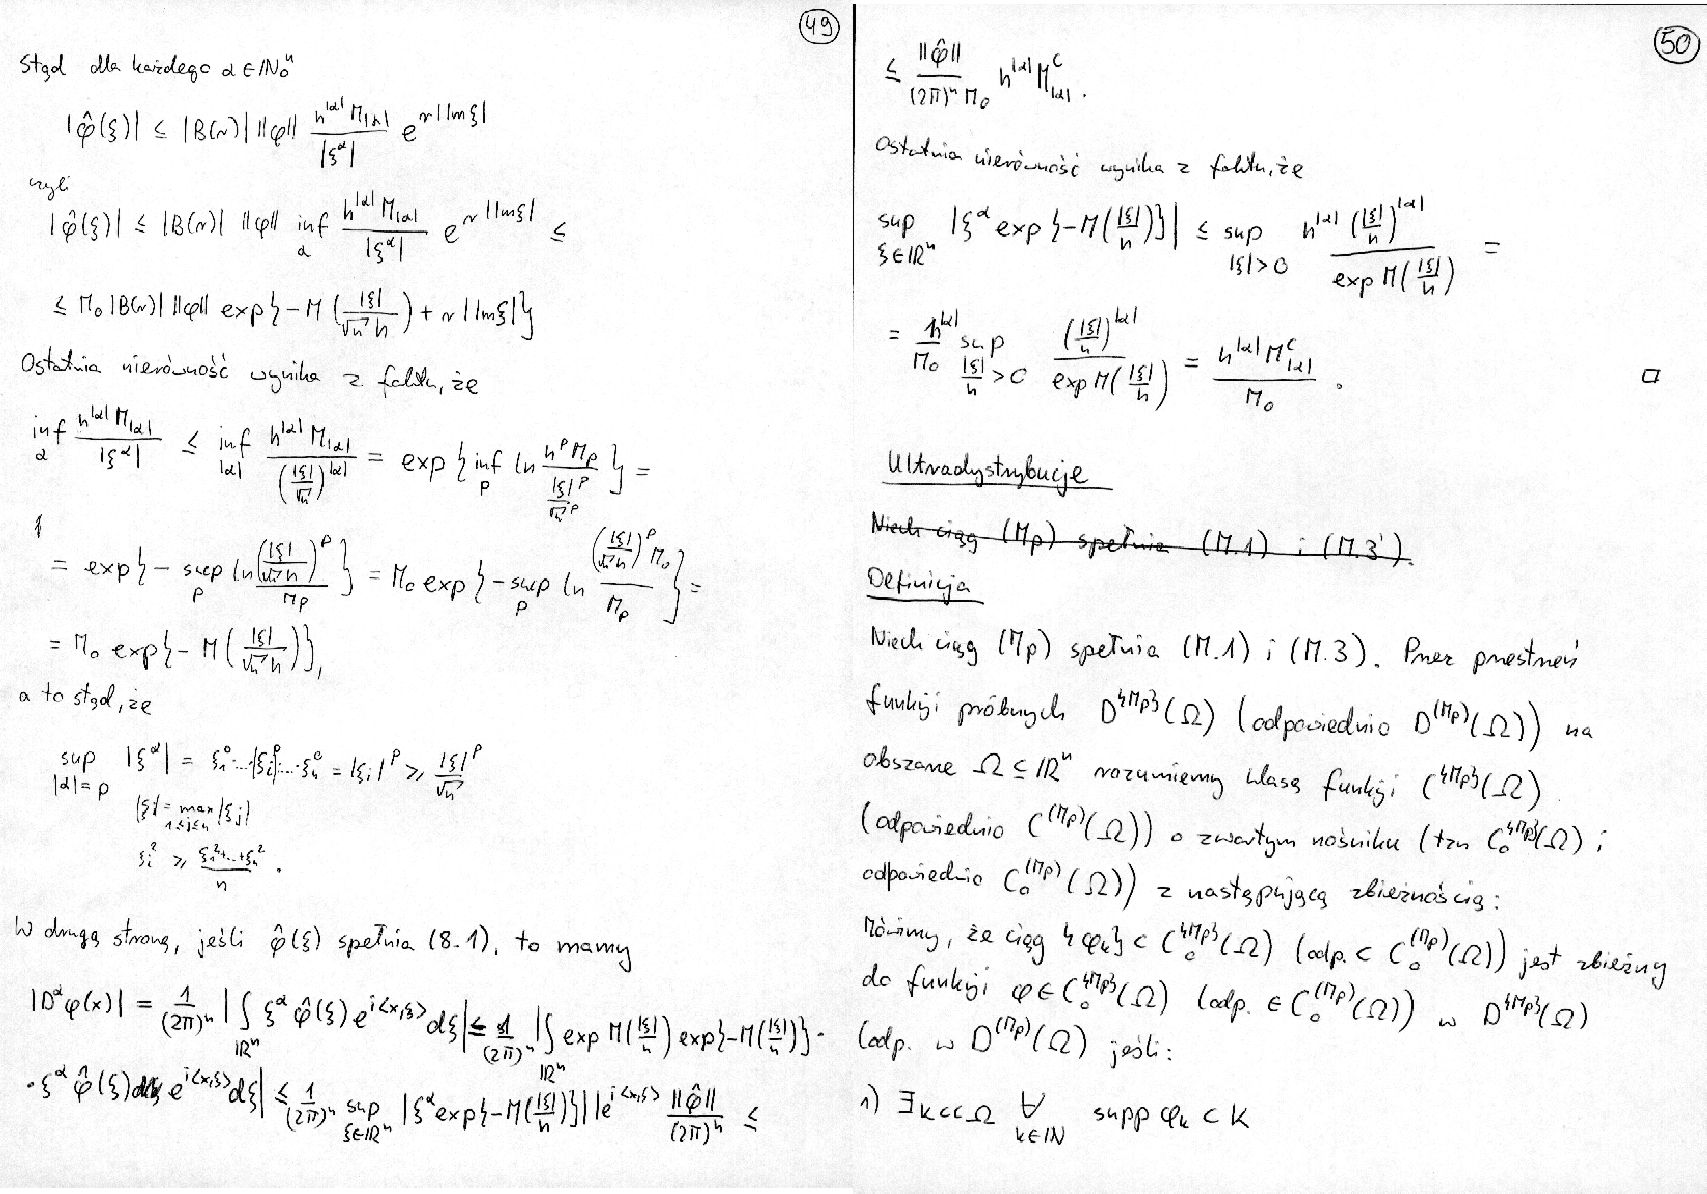 49
Stąd dla każdego α ∈ ℕ₀ⁿ
|φ̂(ξ)| ≤ |B(r)| ||φ|| \frac{h^{|α|} M_{|α|}}{|ξ^α|} e^{r|Imξ|}
czyli
|φ̂(ξ)| ≤ |B(r)| ||φ|| inf_α \frac{h^{|α|} M_{|α|}}{|ξ^α|} e^{r|Imξ|} ≤
≤ M₀ |B(r)| ||φ|| exp{-M(\frac{|ξ|}{√n h}) + r|Imξ|}
Ostatnia nierówność wynika z faktu, że
inf_α \frac{h^{|α|} M_{|α|}}{|ξ^α|} ≤ inf_{|α|} \frac{h^{|α|} M_{|α|}}{(\frac{|ξ|}{√n})^{|α|}} = exp{inf_p ln \frac{h^p M_p}{\frac{|ξ|^p}{√n^p}}} =
= exp{- sup_p ln \frac{(\frac{|ξ|}{√n h})^p}{M_p}} = M₀ exp{-sup_p ln \frac{(\frac{|ξ|}{√n h})^p M₀}{M_p}} =
= M₀ exp{-M(\frac{|ξ|}{√n h})},
a to stąd, że
sup_{|α|=p} |ξ^α| = ξ₁⁰...|ξ_i|^p...ξ_n⁰ = |ξ_i|^p ≥ \frac{|ξ|^p}{√n^p}
|ξ_i| = max_{1≤j≤n} |ξ_j|
ξ_i² ≥ \frac{ξ₁²+...+ξ_n²}{n}.
W drugą stronę, jeśli φ̂(ξ) spełnia (8.1), to mamy
|D^α φ(x)| = \frac{1}{(2π)^n} |∫_{ℝⁿ} ξ^α φ̂(ξ) e^{i<x,ξ>} dξ| ≤ \frac{1}{(2π)^n} |∫_{ℝⁿ} exp M(\frac{|ξ|}{h}) exp{-M(\frac{|ξ|}{h})} ·
· ξ^α φ̂(ξ) e^{i<x,ξ>} dξ| ≤ \frac{1}{(2π)^n} sup_{ξ∈ℝⁿ} |ξ^α exp{-M(\frac{|ξ|}{h})}| |e^{i<x,ξ>}| \frac{||φ̂||}{(2π)^n} ≤
50
≤ \frac{||φ̂||}{(2π)^n M₀} h^{|α|} M^c_{|α|}.
Ostatnia nierówność wynika z faktu, że
sup_{ξ∈ℝⁿ} |ξ^α exp{-M(\frac{|ξ|}{h})}| ≤ sup_{|ξ|>0} \frac{h^{|α|} (\frac{|ξ|}{h})^{|α|}}{exp M(\frac{|ξ|}{h})} =
= \frac{h^{|α|}}{M₀} sup_{\frac{|ξ|}{h}>0} \frac{(\frac{|ξ|}{h})^{|α|}}{exp M(\frac{|ξ|}{h})} = \frac{h^{|α|} M^c_{|α|}}{M₀}. □
Ultradystrybucje
Niech ciąg (M_p) spełnia (M.1) i (M.3').
Definicja
Niech ciąg (M_p) spełnia (M.1) i (M.3). Przez przestrzeń
funkcji próbnych D^{{M_p}}(Ω) (odpowiednio D^{(M_p)}(Ω)) na
obszarze Ω ⊆ ℝⁿ rozumiemy klasę funkcji C^{{M_p}}(Ω)
(odpowiednio C^{(M_p)}(Ω)) o zwartym nośniku (tzn C₀^{{M_p}}(Ω) i
odpowiednio C₀^{(M_p)}(Ω)) z następującą zbieżnością:
Mówimy, że ciąg {φ_k} ⊂ C₀^{{M_p}}(Ω) (odp. ⊂ C₀^{(M_p)}(Ω)) jest zbieżny
do funkcji φ ∈ C₀^{{M_p}}(Ω) (odp. ∈ C₀^{(M_p)}(Ω)) w D^{{M_p}}(Ω)
(odp. w D^{(M_p)}(Ω) jeśli:
1) ∃_{K⊂⊂Ω} ∀_{k∈ℕ} supp φ_k ⊂ K